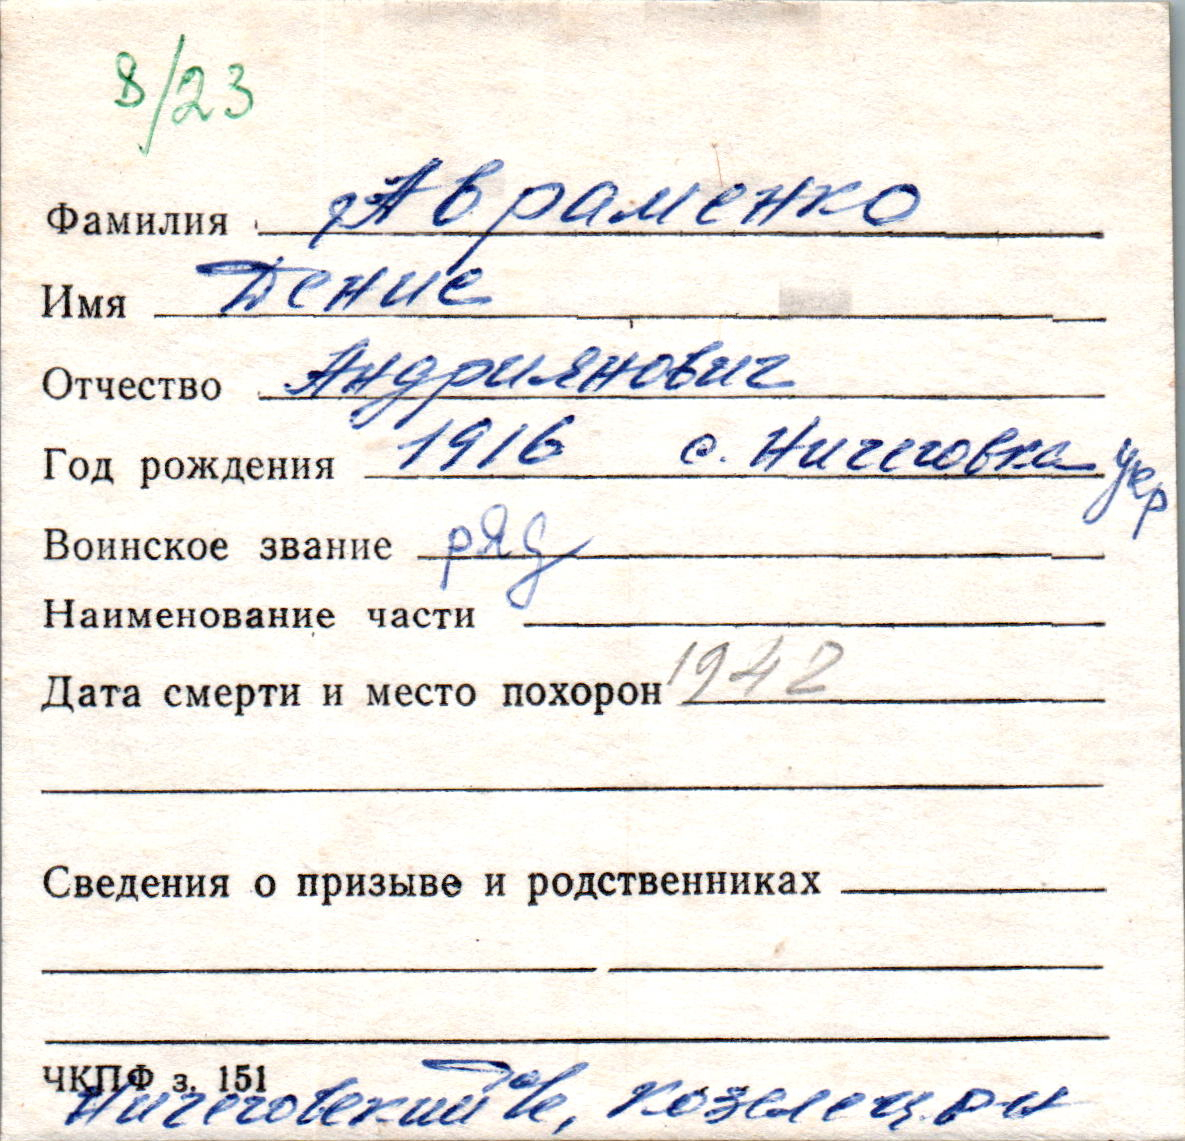 8/23
Фамилия Авраменко
Имя Денис
Отчество Андриянович
Год рождения 1916 с. Ничеговка укр
Воинское звание ряд
Наименование части
Дата смерти и место похорон 1942
Сведения о призыве и родственниках
ЧКПФ з. 151
Ничеговский Козелец. р-н